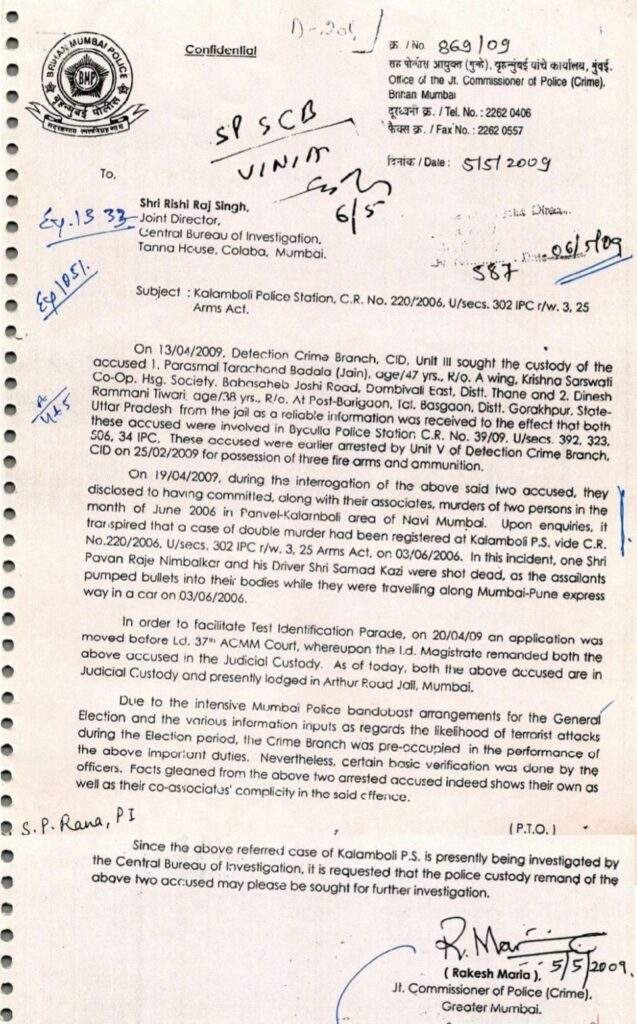 D-206
BRIHAN MUMBAI POLICE
BMP
बृहन्मुंबई पोलीस
Confidential
क्र. / No. 869/09
सह पोलीस आयुक्त (गुन्हे), बृहन्मुंबई यांचे कार्यालय, मुंबई.
Office of the Jt. Commissioner of Police (Crime).
Brihan Mumbai
दूरध्वनी क्र. / Tel. No. : 2262 0406
फैक्स क्र. / Fax No. : 2262 0557
दिनांक / Date : 5/5/2009
SP SCB
6/5
To,
Shri Rishi Raj Singh,
Joint Director,
Central Bureau of Investigation,
Tanna House, Colaba, Mumbai.
587
Date 06/5/09
Subject : Kalamboli Police Station, C.R. No. 220/2006, U/secs. 302 IPC r/w. 3, 25
Arms Act.
On 13/04/2009, Detection Crime Branch, CID, Unit III sought the custody of the
accused 1. Parasmal Tarachand Badala (Jain), age/47 yrs., R/o. A wing, Krishna Sarswati
Co-Op. Hsg. Society, Babasaheb Joshi Road, Dombivali East, Distt. Thane and 2. Dinesh
Rammani Tiwari, age/38 yrs., R/o. At Post-Barigaon, Tal. Basgaon, Distt. Gorakhpur, State-
Uttar Pradesh from the jail as a reliable information was received to the effect that both
these accused were involved in Byculla Police Station C.R. No. 39/09, U/secs. 392, 323,
506, 34 IPC. These accused were earlier arrested by Unit V of Detection Crime Branch,
CID on 25/02/2009 for possession of three fire arms and ammunition.
On 19/04/2009, during the interrogation of the above said two accused, they
disclosed to having committed, along with their associates, murders of two persons in the
month of June 2006 in Panvel-Kalamboli area of Navi Mumbai. Upon enquiries, it
transpired that a case of double murder had been registered at Kalamboli P.S. vide C.R.
No.220/2006, U/secs. 302 IPC r/w. 3, 25 Arms Act, on 03/06/2006. In this incident, one Shri
Pavan Raje Nimbalkar and his Driver Shri Samad Kazi were shot dead, as the assailants
pumped bullets into their bodies while they were travelling along Mumbai-Pune express
way in a car on 03/06/2006.
In order to facilitate Test Identification Parade, on 20/04/09 an application was
moved before Ld. 37th ACMM Court, whereupon the Ld. Magistrate remanded both the
above accused in the Judicial Custody. As of today, both the above accused are in
Judicial Custody and presently lodged in Arthur Road Jail, Mumbai.
Due to the intensive Mumbai Police bandobast arrangements for the General
Election and the various information inputs as regards the likelihood of terrorist attacks
during the Election period, the Crime Branch was pre-occupied in the performance of
the above important duties. Nevertheless, certain basic verification was done by the
officers. Facts gleaned from the above two arrested accused indeed shows their own as
well as their co-associates' complicity in the said offence.
S.P. Rana, PI
(P.T.O.)
Since the above referred case of Kalamboli P.S. is presently being investigated by
the Central Bureau of Investigation, it is requested that the police custody remand of the
above two accused may please be sought for further investigation.
(Rakesh Maria), 5/5/2009.
Jt. Commissioner of Police (Crime),
Greater Mumbai.